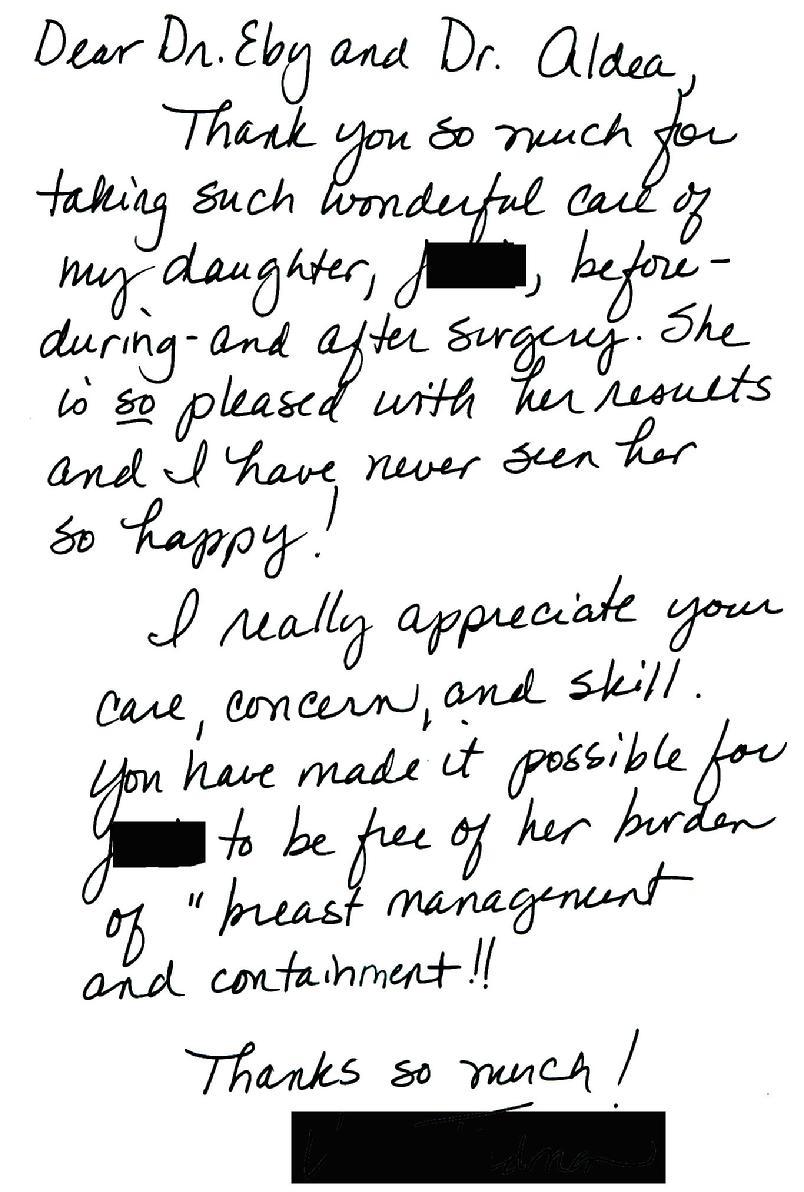 Dear Dr. Eby and Dr. Aldea,
Thank you so much for
taking such wonderful care of
my daughter, J, before-
during-and after surgery. She
is so pleased with her results
and I have never seen her
so happy!
I really appreciate your
care, concern, and skill.
You have made it possible for
J to be free of her burden
of "breast management
and containment!!
Thanks so much!